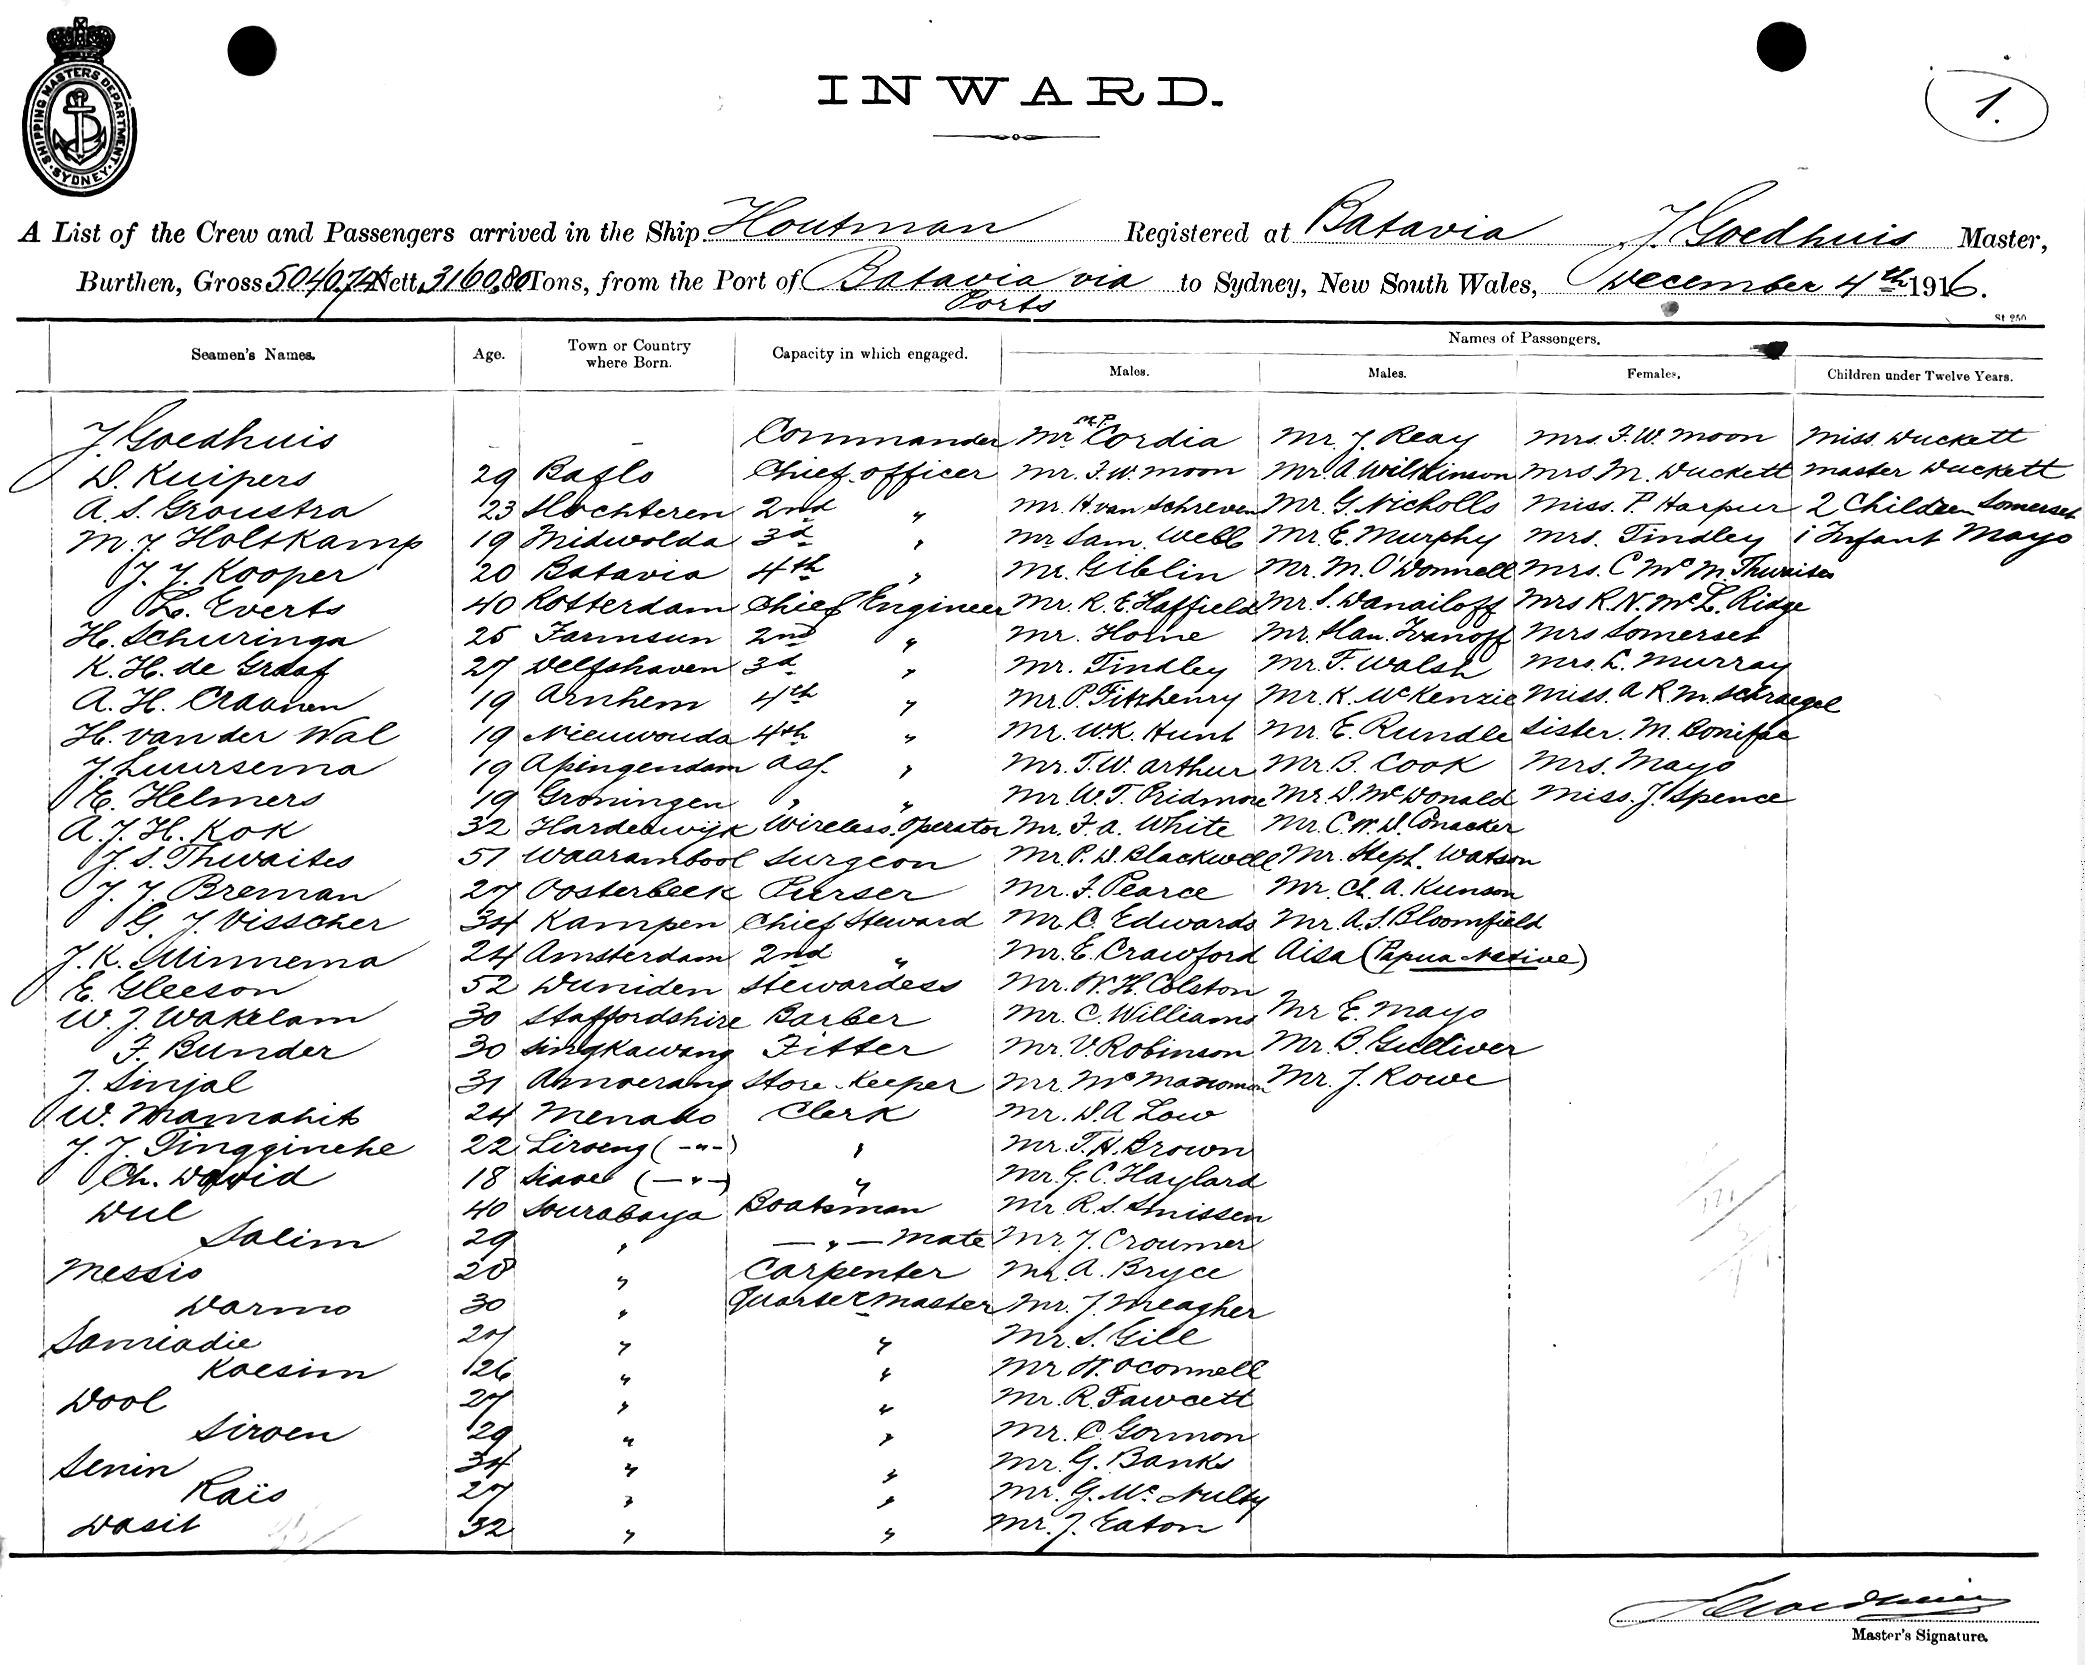 SHIPPING MASTERS DEPARTMENT · SYDNEY ·
INWARD.
1.
A List of the Crew and Passengers arrived in the Ship Houtman Registered at Batavia J. Goedhuis Master,
Burthen, Gross 5040.74 Nett 3160.80 Tons, from the Port of Batavia via to Sydney, New South Wales, December 4th 1916.
Ports
St 250
Seamen's Names. Age. Town or Country where Born. Capacity in which engaged. Names of Passengers.
Males. Males. Females. Children under Twelve Years.
J. Goedhuis - - Commander Mr M.P. Cordia Mr J. Reay Mrs. F.W. Moon Miss. Duckett
D. Kuipers 29 Baflo Chief officer Mr. F.W. Moon Mr. A Wilkinson Mrs M. Duckett Master Duckett
A. S. Groustra 23 Slochteren 2nd " Mr. H. van Schreven Mr. G. Nicholls Miss. P. Harpur 2 Children Somerset
M. J. Holtkamp 19 Midwolda 3d " Mr Sam. Webb Mr. E. Murphy Mrs. Tindley 1 Infant Mayo
J. J. Kooper 20 Batavia 4th " Mr. Giblin Mr. M. O'Donnell Mrs. C Mc M. Thwaites
L. Everts 40 Rotterdam Chief Engineer Mr. R. E. Haffield Mr. S. Danailoff Mrs R. N. Mc L. Ridge
H. Schuringa 25 Farmsun 2nd " Mr. Horne Mr. Ilan. Ivanoff Mrs Somerset
K. H. de Graaf 27 Delfshaven 3d " Mr. Tindley Mr. F. Walsh Mrs. L. Murray
A. H. Craanen 19 Arnhem 4th " Mr. P. Fitzhenry Mr. K. McKenzie Miss. A R. M. Schraegel
H. van der Wal 19 Nieuwouda 4th " Mr. W.K. Hunt Mr. E. Rundle Sister. M. Boniface
J. Luursema 19 Apingendam ass. " Mr. T. W. Arthur Mr. B. Cook Mrs. Mayo
E. Helmers 19 Groningen " " Mr. W. T. Pridmore Mr. D. McDonald Miss. J. Spence
A. J. H. Kok 32 Harderwijk Wireless. operator Mr. F. A. White Mr. C. W. D. Conacker
J. S. Thwaites 51 Waarambool Surgeon Mr. P. D. Blackwell Mr. Steph. Watson
J. J. Breman 27 Oosterbeek Purser Mr. F. Pearce Mr. Ch. A. Kunson
G. J. Visscher 34 Kampen Chief Steward Mr. C. Edwards Mr. A. S. Bloomfield
J. K. Minnema 24 Amsterdam 2nd " Mr. E. Crawford Aisa (Papua Native)
E. Gleeson 52 Duniden Stewardess Mr. W. H. Colston
W. J. Wakelam 30 Staffordshire Barber Mr. C. Williams Mr E. Mayo
F. Bunder 30 Singkawang Fitter Mr. V. Robinson Mr. B. Gulliver
J. Sinjal 31 Amoerang Store-Keeper Mr Mc Manoman Mr. J. Rowe
W. Mamahit 24 Menado Clerk Mr. D. A Low
J. J. Tingginehe 22 Liroeng (-"-) " Mr. T. H. Brown
Ch. David 18 Siaoe (-"-) " Mr. G. C. Haylard
Dul 40 Sourabaya Boatsman Mr. R. S. Smissen
Salim 29 " -"- Mate Mr. J. Croumer
Messio 28 " Carpenter Mr. A. Bryce
Darmo 30 " Quartermaster Mr. J. Meagher
Samiadie 27 " " Mr. S. Gill
Kaesim 26 " " Mr W. OConnell
Dool 27 " " Mr. R. Fawcett
Siroen 29 " " Mr. C. Gormon
Senin 34 " " Mr. G. Banks
Raïs 27 " " Mr. G. Mc. Nulty
Dasit 32 " " Mr. J. Eaton
J Goedhuis
Master's Signature.